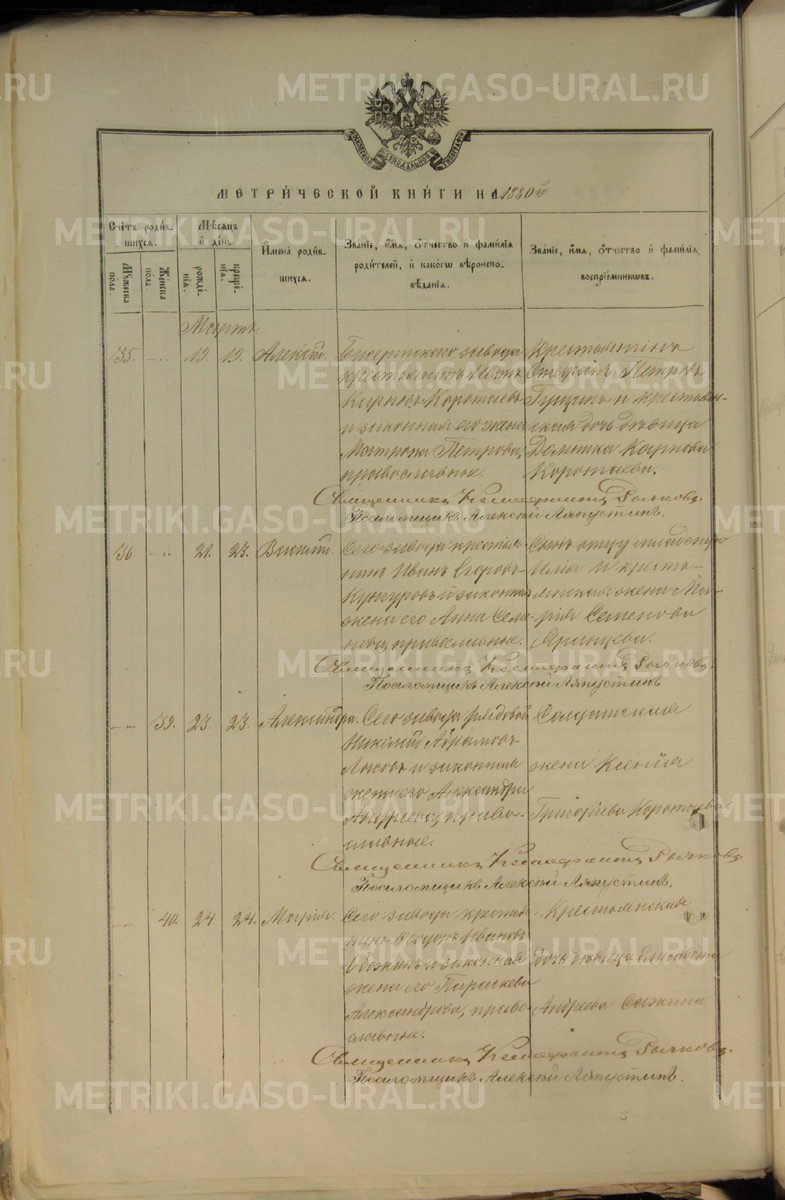 METRIKI.GASO-URAL.RU
МЕТРИ́ЧЕСКОЙ КНИ́ГИ НА 1880й
Счетъ роди́в-
шихся.
Му́жеска
пола.
Же́нска
пола.
Мѣсяцъ
и҆ де́нь
рожде́-
нїя.
креще́-
нїя.
И҆мена̀ роди́в-
шихся.
Зва́нїе, и҆́мя, ѻ҆́тчество и҆ фами́лїя
роди́телей, и҆ како́гѡ вѣроиспо-
вѣ́данїя.
Зва́нїе, и҆́мя, ѻ҆́тчество и҆ фами́лїя
воспрїе́мникѡвъ.
Мартъ
35. 19. 19. Алексѣй
завода
крестьянинъ
Коротаевъ
и законная его жена
Матрона Петрова,
православные.
Крестьянинъ
Петровъ
и крестьян-
ская дочь дѣвица
Домника Карпова
Коротаева.
Священникъ Рычковъ.
Псаломщикъ Алексѣй Ляпустинъ.
36. 21. 23. Василій.
Сего завода крестья-
нинъ Иванъ Егоровъ
Кунгуровъ и законная
жена его Анна Семе-
нова, православные.
Сынъ
Илья и кресть-
янская жена Ма-
рія Семенова
Священникъ Рычковъ.
Псаломщикъ Алексѣй Ляпустинъ
39. 23. 23. Александра.
Сего завода рядовой
Николай Абрамовъ
и законная
жена его Александра
Андреева, право-
славные.
Солдатская
жена Ксенія
Григорьева Коротаева
Священникъ Рычковъ.
Псаломщикъ Алексѣй Ляпустинъ.
40. 24. 24. Марія.
Сего завода крестья-
нинъ Ѳеодоръ Ивановъ
и законная
жена его Параскева
Александрова, право-
славные.
Крестьянская
дочь дѣвица Елисавета
Андреева
Священникъ Рычковъ.
Псаломщикъ Алексѣй Ляпустинъ.